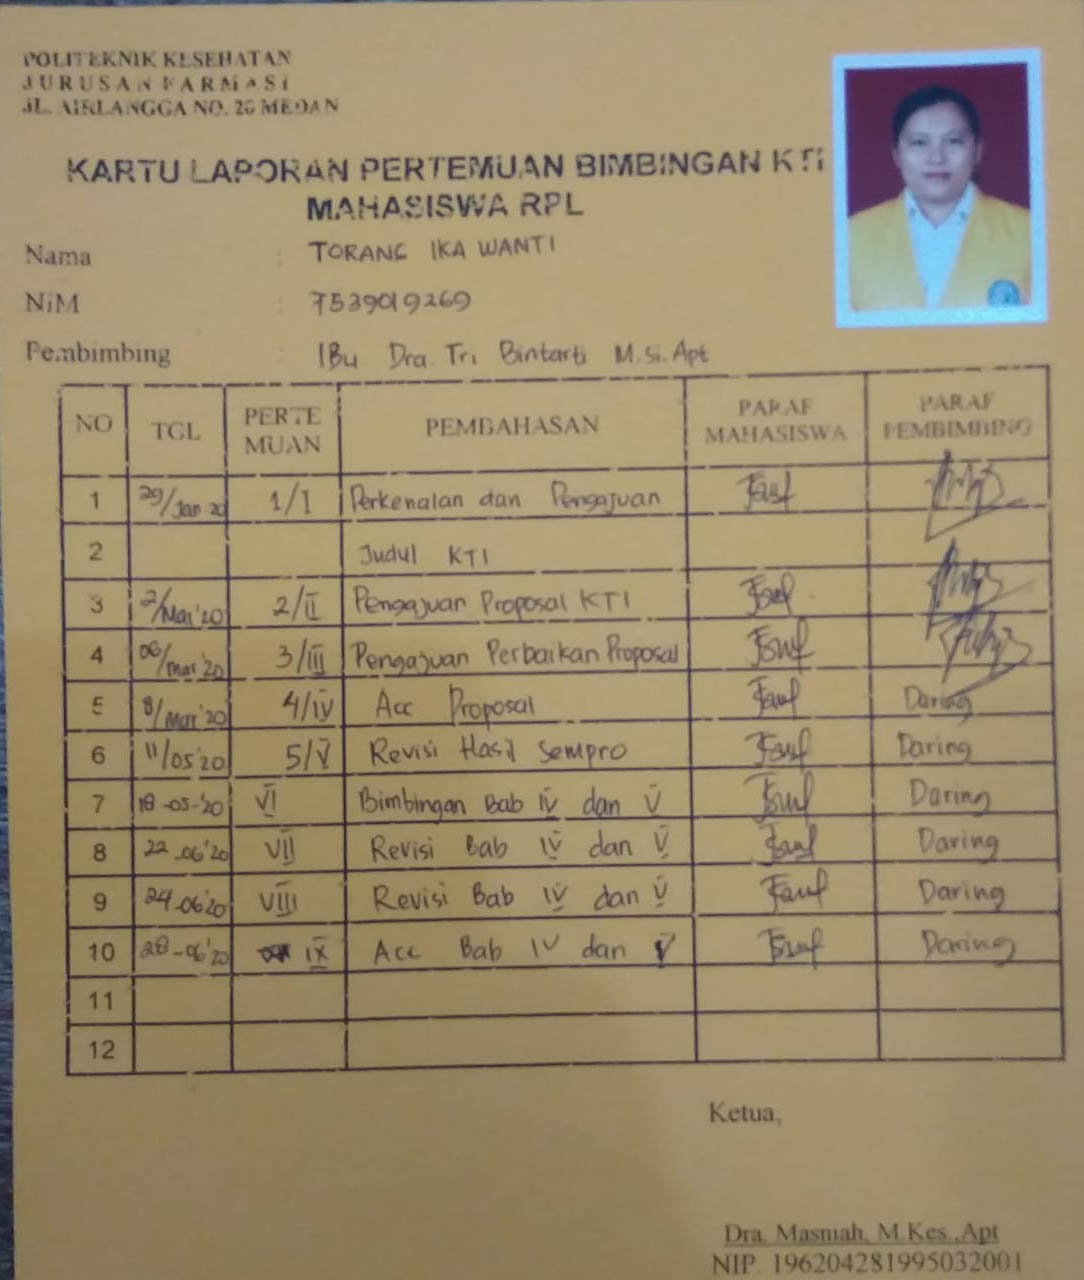 POLITEKNIK KESEHATAN
JURUSAN FARMASI
JL. AIRLANGGA NO. 20 MEDAN
KARTU LAPORAN PERTEMUAN BIMBINGAN KTI
MAHASISWA RPL
Nama : TORANG IKA WANTI
NIM : 7539019269
Pembimbing : IBu Dra. Tri Bintarti M.Si.Apt
NO TGL PERTEMUAN PEMBAHASAN PARAF MAHASISWA PARAF PEMBIMBING
1 29/Jan 20 1/I Perkenalan dan Pengajuan
2 Judul KTI
3 2/Mar'20 2/II Pengajuan Proposal KTI
4 06/mar'20 3/III Pengajuan Perbaikan Proposal
5 8/Mar'20 4/IV Acc Proposal Daring
6 11/05'20 5/V Revisi Hasil Sempro Daring
7 18-05-'20 VI Bimbingan Bab IV dan V Daring
8 22-06'20 VII Revisi Bab IV dan V Daring
9 24-06'20 VIII Revisi Bab IV dan V Daring
10 28-06'20 IX Acc Bab IV dan V Daring
11
12
Ketua,
Dra. Masniah, M.Kes.,Apt
NIP. 196204281995032001